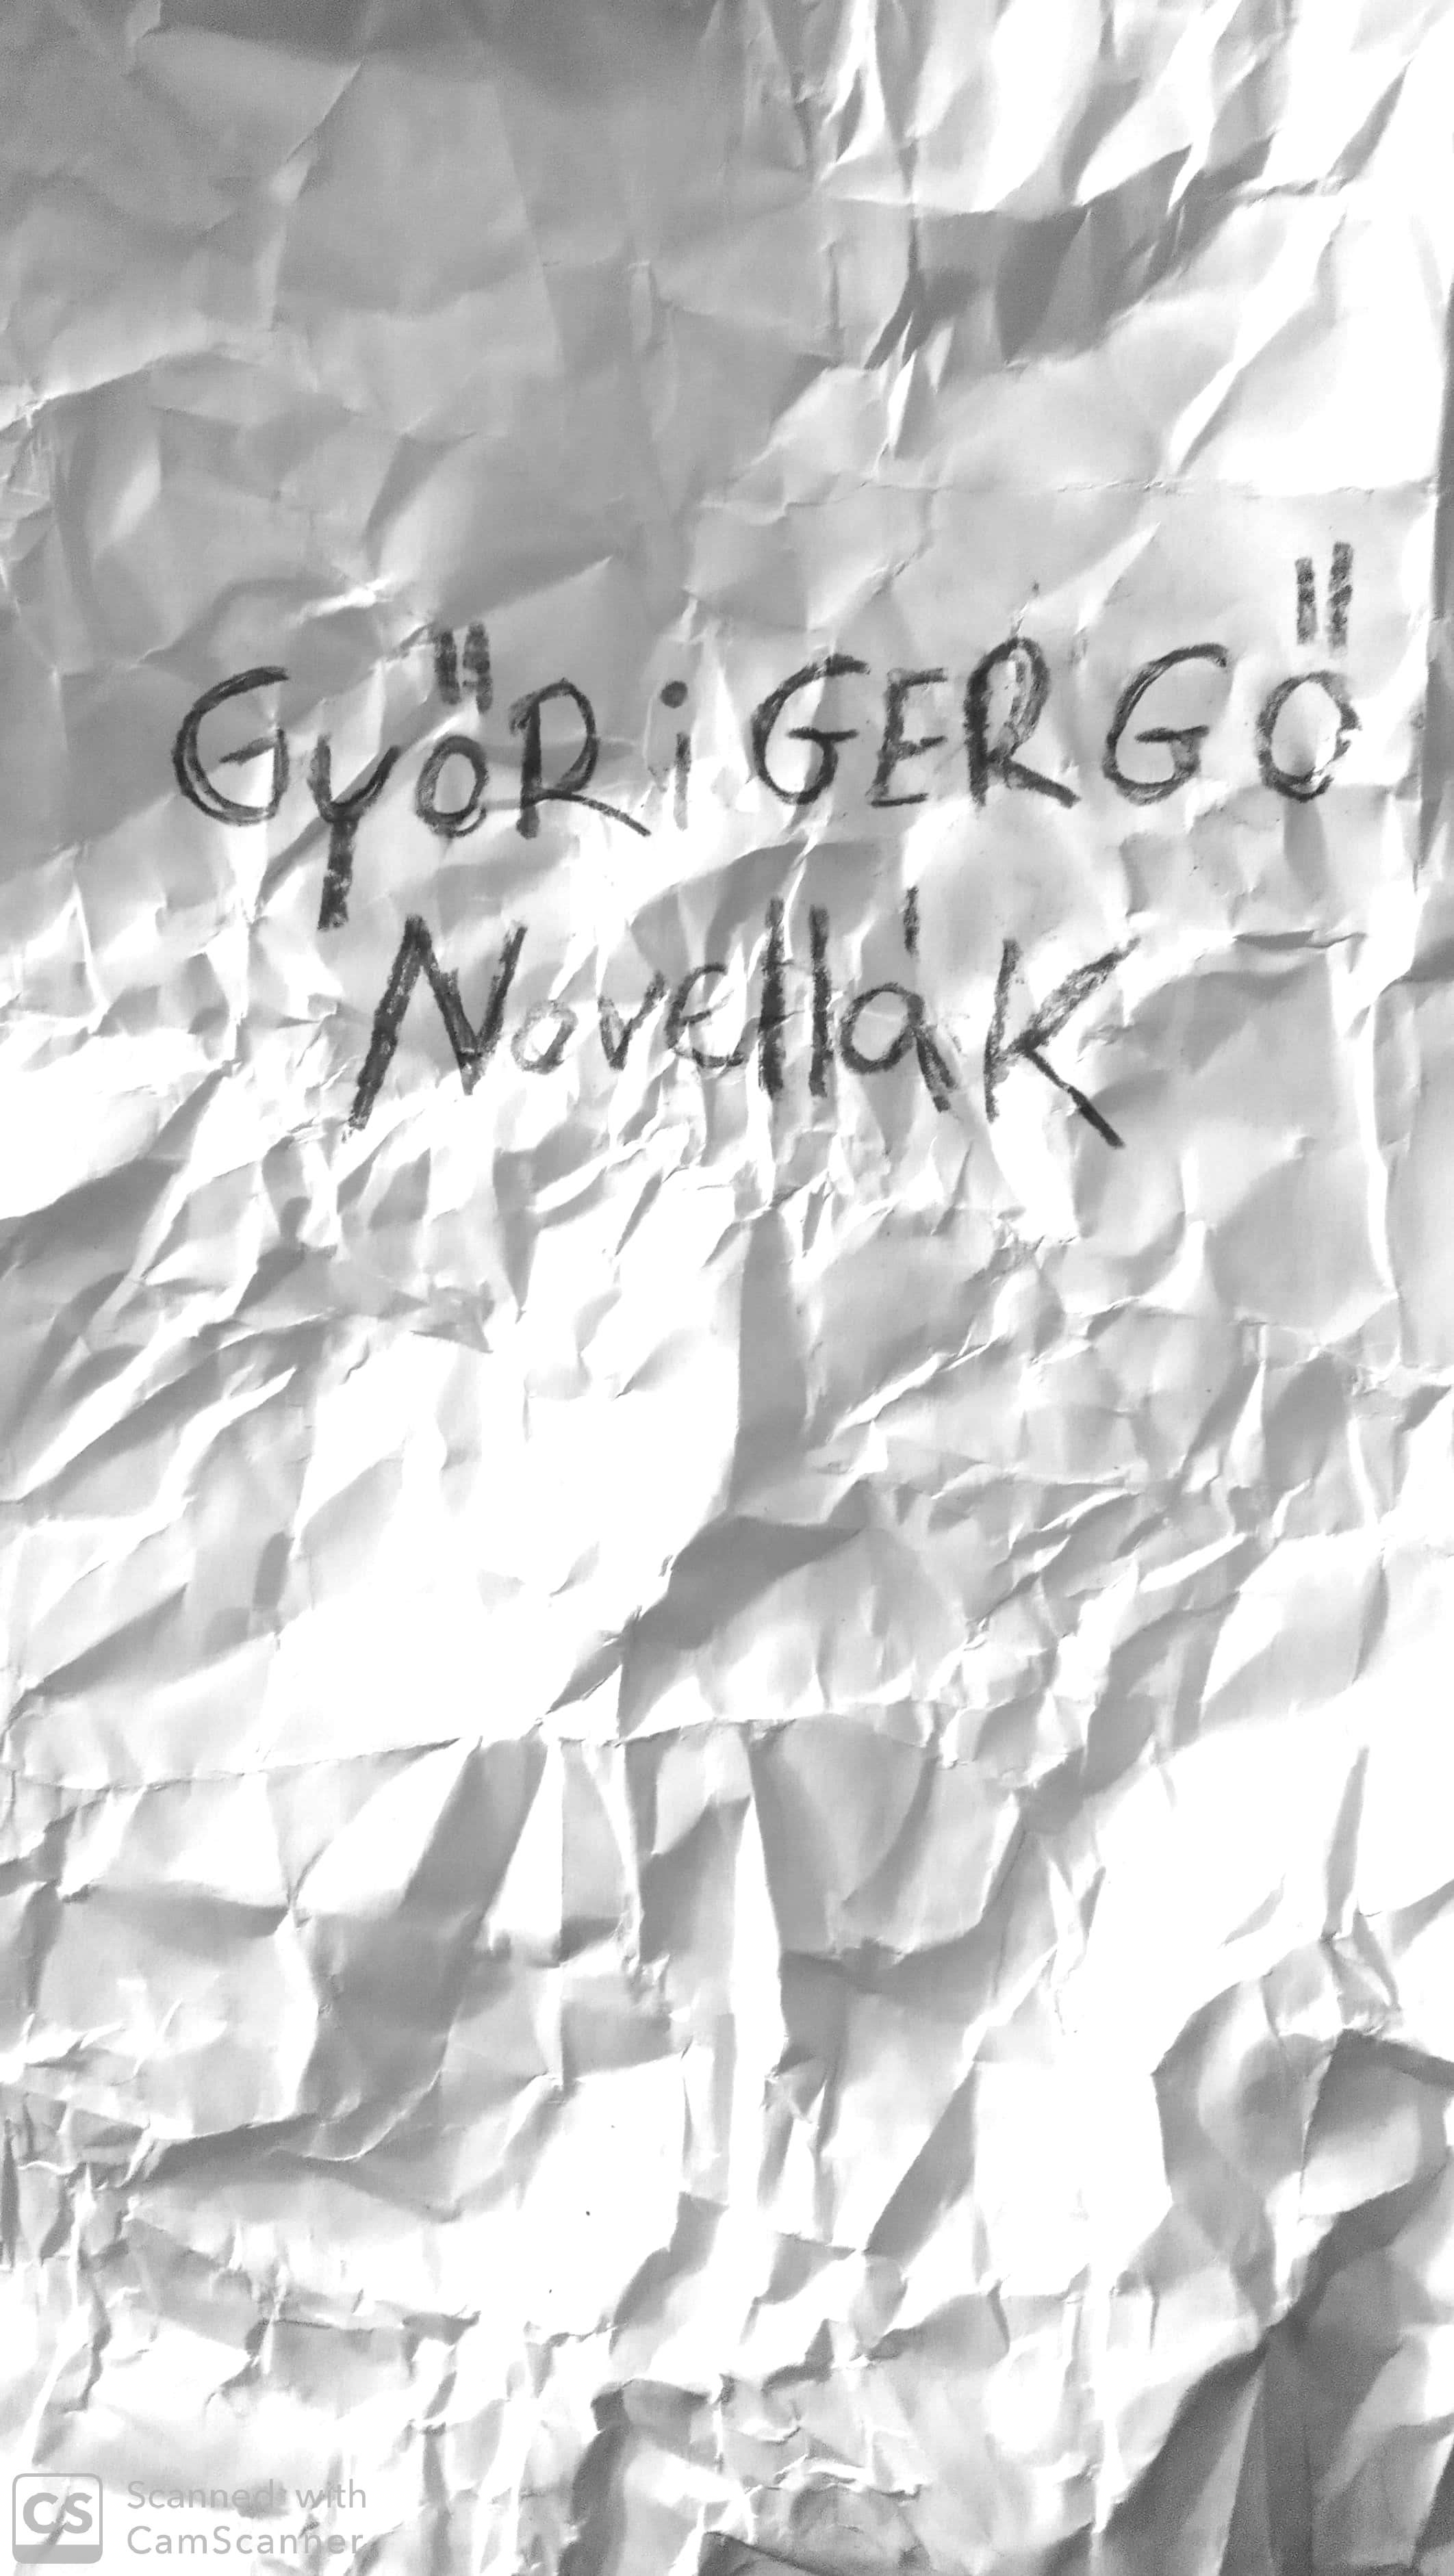 GYŐRi GERGŐ
Novellák
CS Scanned with
CamScanner